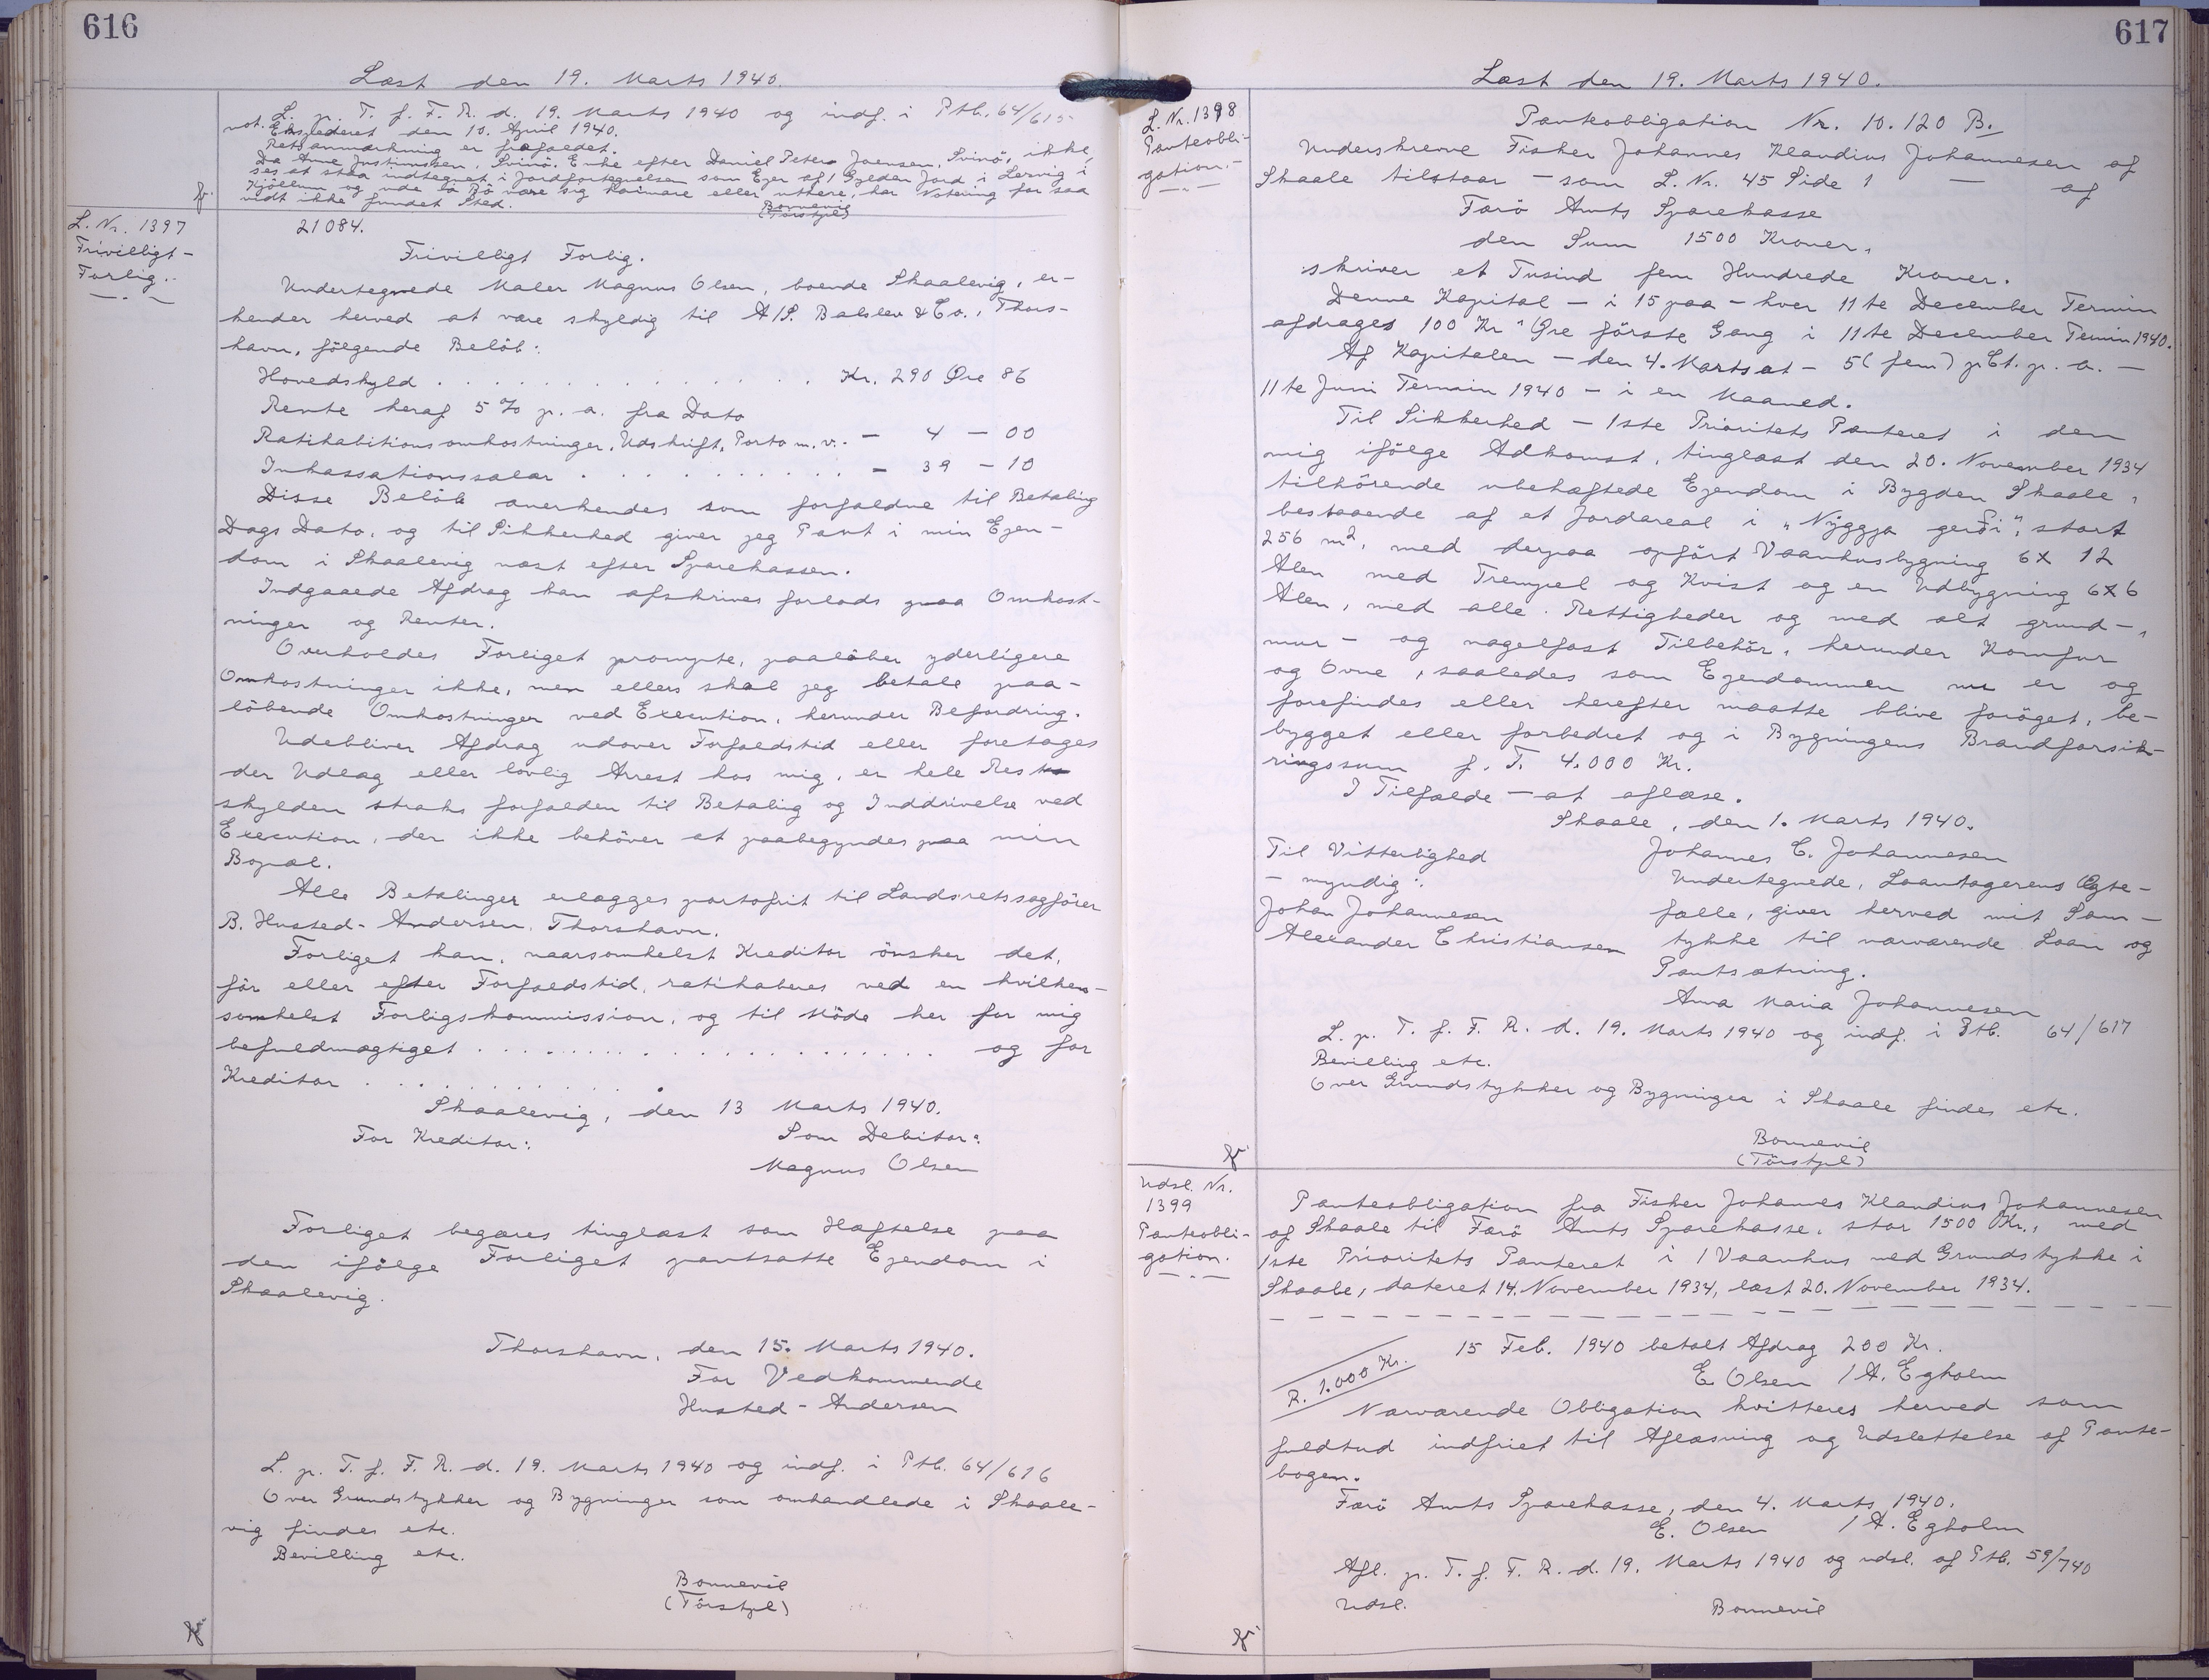 616
Læst den 19. Marts 1940.
L. p. T. f. F. R. d. 19. Marts 1940 og indf. i Ptb. 64/615
not. Ekspederet den 10. April 1940.
Retsanmærkning er frafaldet.
Da Anne Justinussen, Svinö, Enke efter Daniel Peter Joensen, Svinö, ikke
ses at staa indtegnet i Jordfortegnelsen som Ejer af 1 Gylden Jord i Lervig i
Kjöllum og ude la Bö være sig haimare eller uttere, har Notering for saa
vidt ikke fundet Sted.
Bonnevie
(Törstpl)
L. Nr. 1397
Frivilligt-
Forlig.
21084.
Frivilligt Forlig.
Undertegnede Maler Magnus Olsen, boende Skaalevig, er-
kender herved at være skyldig til A/S. Balslev & Co., Thors-
havn, fölgende Belöb:
Hovedskyld . . . . . . . . . . . Kr. 290 Øre 86
Rente heraf 5 % p. a. fra Dato
Ratihabitionsomkostninger, Udskrift, Porto m. v. - 4 - 00
Inkassationssalær . . . . . . . . . . - 39 - 10
Disse Belöb anerkendes som forfaldne til Betaling
Dags Dato, og til Sikkerhed giver jeg Pant i min Ejen-
dom i Skaalevig næst efter Sparekassen.
Indgaaede Afdrag kan afskrives forlods paa Omkost-
ninger og Renter.
Overholdes Forliget prompte, paalöber yderligere
Omkostninger ikke, men ellers skal jeg betale paa-
löbende Omkostninger ved Execution, herunder Befordring.
Udebliver Afdrag udover Forfaldstid eller foretages
der Udlæg eller lovlig Arrest hos mig, er hele Rest
skylden straks forfalden til Betaling og Inddrivelse ved
Execution, der ikke behöver at paabegyndes paa min
Bopæl.
Alle Betalinger erlægges portofrit til Landsretssagförer
B. Husted-Andersen, Thorshavn.
Forliget kan, naarsomhelst Kreditor önsker det,
för eller efter Forfaldstid, ratihaberes ved en hvilken-
somhelst Forligskommission, og til Möde her for mig
befuldmægtiget . . . . . . . . . . . . . . . . . og for
Kreditor . . . . . . . . . .
Skaalevig, den 13 Marts 1940.
For Kreditor: Som Debitor:
Magnus Olsen
Forliget begæres tinglæst som Hæftelse paa
den ifölge Forliget pantsatte Ejendom i
Skaalevig.
Thorshavn, den 15. Marts 1940.
For Vedkommende
Husted-Andersen
L. p. T. f. F. R. d. 19. Marts 1940 og indf. i Ptb. 64/616
Over Grundstykker og Bygninger som omhandlede i Skaale-
vig findes etc.
Bevilling etc.
Bonnevie
(Törstpl)
617
Læst den 19. Marts 1940.
L. Nr. 1398
Panteobli-
gation.
Panteobligation Nr. 10.120 B.
Underskrevne Fisker Johannes Klandius Johannesen af
Skaale tilstaar - som L. Nr. 45 Side 1 - af
Færö Amts Sparekasse
den Sum 1500 Kroner,
skriver et Tusind fem Hundrede Kroner.
Denne Kapital - i 15 paa - hver 11te December Termin
afdrages 100 Kr " Øre förste Gang i 11te December Termin 1940.
Af Kapitalen - den 4. Marts at - 5 (fem) pCt. p. a. -
11te Juni Termin 1940 - i en Maaned.
Til Sikkerhed - 1ste Prioritets Panteret i den
mig ifölge Adkomst, tinglæst den 20. November 1934
tilhörende ubehæftede Ejendom i Bygden Skaale,
bestaaende af et Jordareal i "Nýggja gerði", stort
256 m², med derpaa opfört Vaanhusbygning 6 x 12
Alen med Trempel og Kvist og en Udbygning 6x6
Alen, med alle Rettigheder og med alt grund-,
mur- og nagelfast Tilbehör, herunder Komfur
og Ovne, saaledes som Ejendommen nu er og
forefindes eller herefter maatte blive foröget, be-
bygget eller forbedret og i Bygningens Brandforsik-
ringssum f. T. 4.000 Kr.
I Tilfælde - at aflæse.
Skaale, den 1. Marts 1940.
Til Vitterlighed Johannes C. Johannesen
- myndig: Undertegnede, Laantagerens Ægte-
Johan Johannesen fælle, giver herved mit Sam-
Alexander Christiansen tykke til nærværende Laan og
Pantsætning.
Anna Maria Johannesen
L. p. T. f. F. R. d. 19. Marts 1940 og indf. i Ptb. 64/617
Bevilling etc.
Over Grundstykker og Bygninger i Skaale findes etc.
Bonnevie
(Törstpl)
Udsl. Nr.
1399
Panteobli-
gation.
Panteobligation fra Fisker Johannes Klandius Johannesen
af Skaale til Færö Amts Sparekasse, stor 1500 Kr., med
1ste Prioritets Panteret i 1 Vaanhus med Grundstykke i
Skaale, dateret 14. November 1934, læst 20. November 1934.
15 Feb. 1940 betalt Afdrag 200 Kr.
R. 1.000 Kr.
E. Olsen / A. Egholm
Nærværende Obligation kvitteres herved som
fuldtud indfriet til Aflæsning og Udslettelse af Pante-
bogen.
Færö Amts Sparekasse, den 4. Marts 1940.
E. Olsen / A. Egholm
Afl. p. T. f. F. R. d. 19. Marts 1940 og udsl. af Ptb. 59/740
Udsl.
Bonnevie